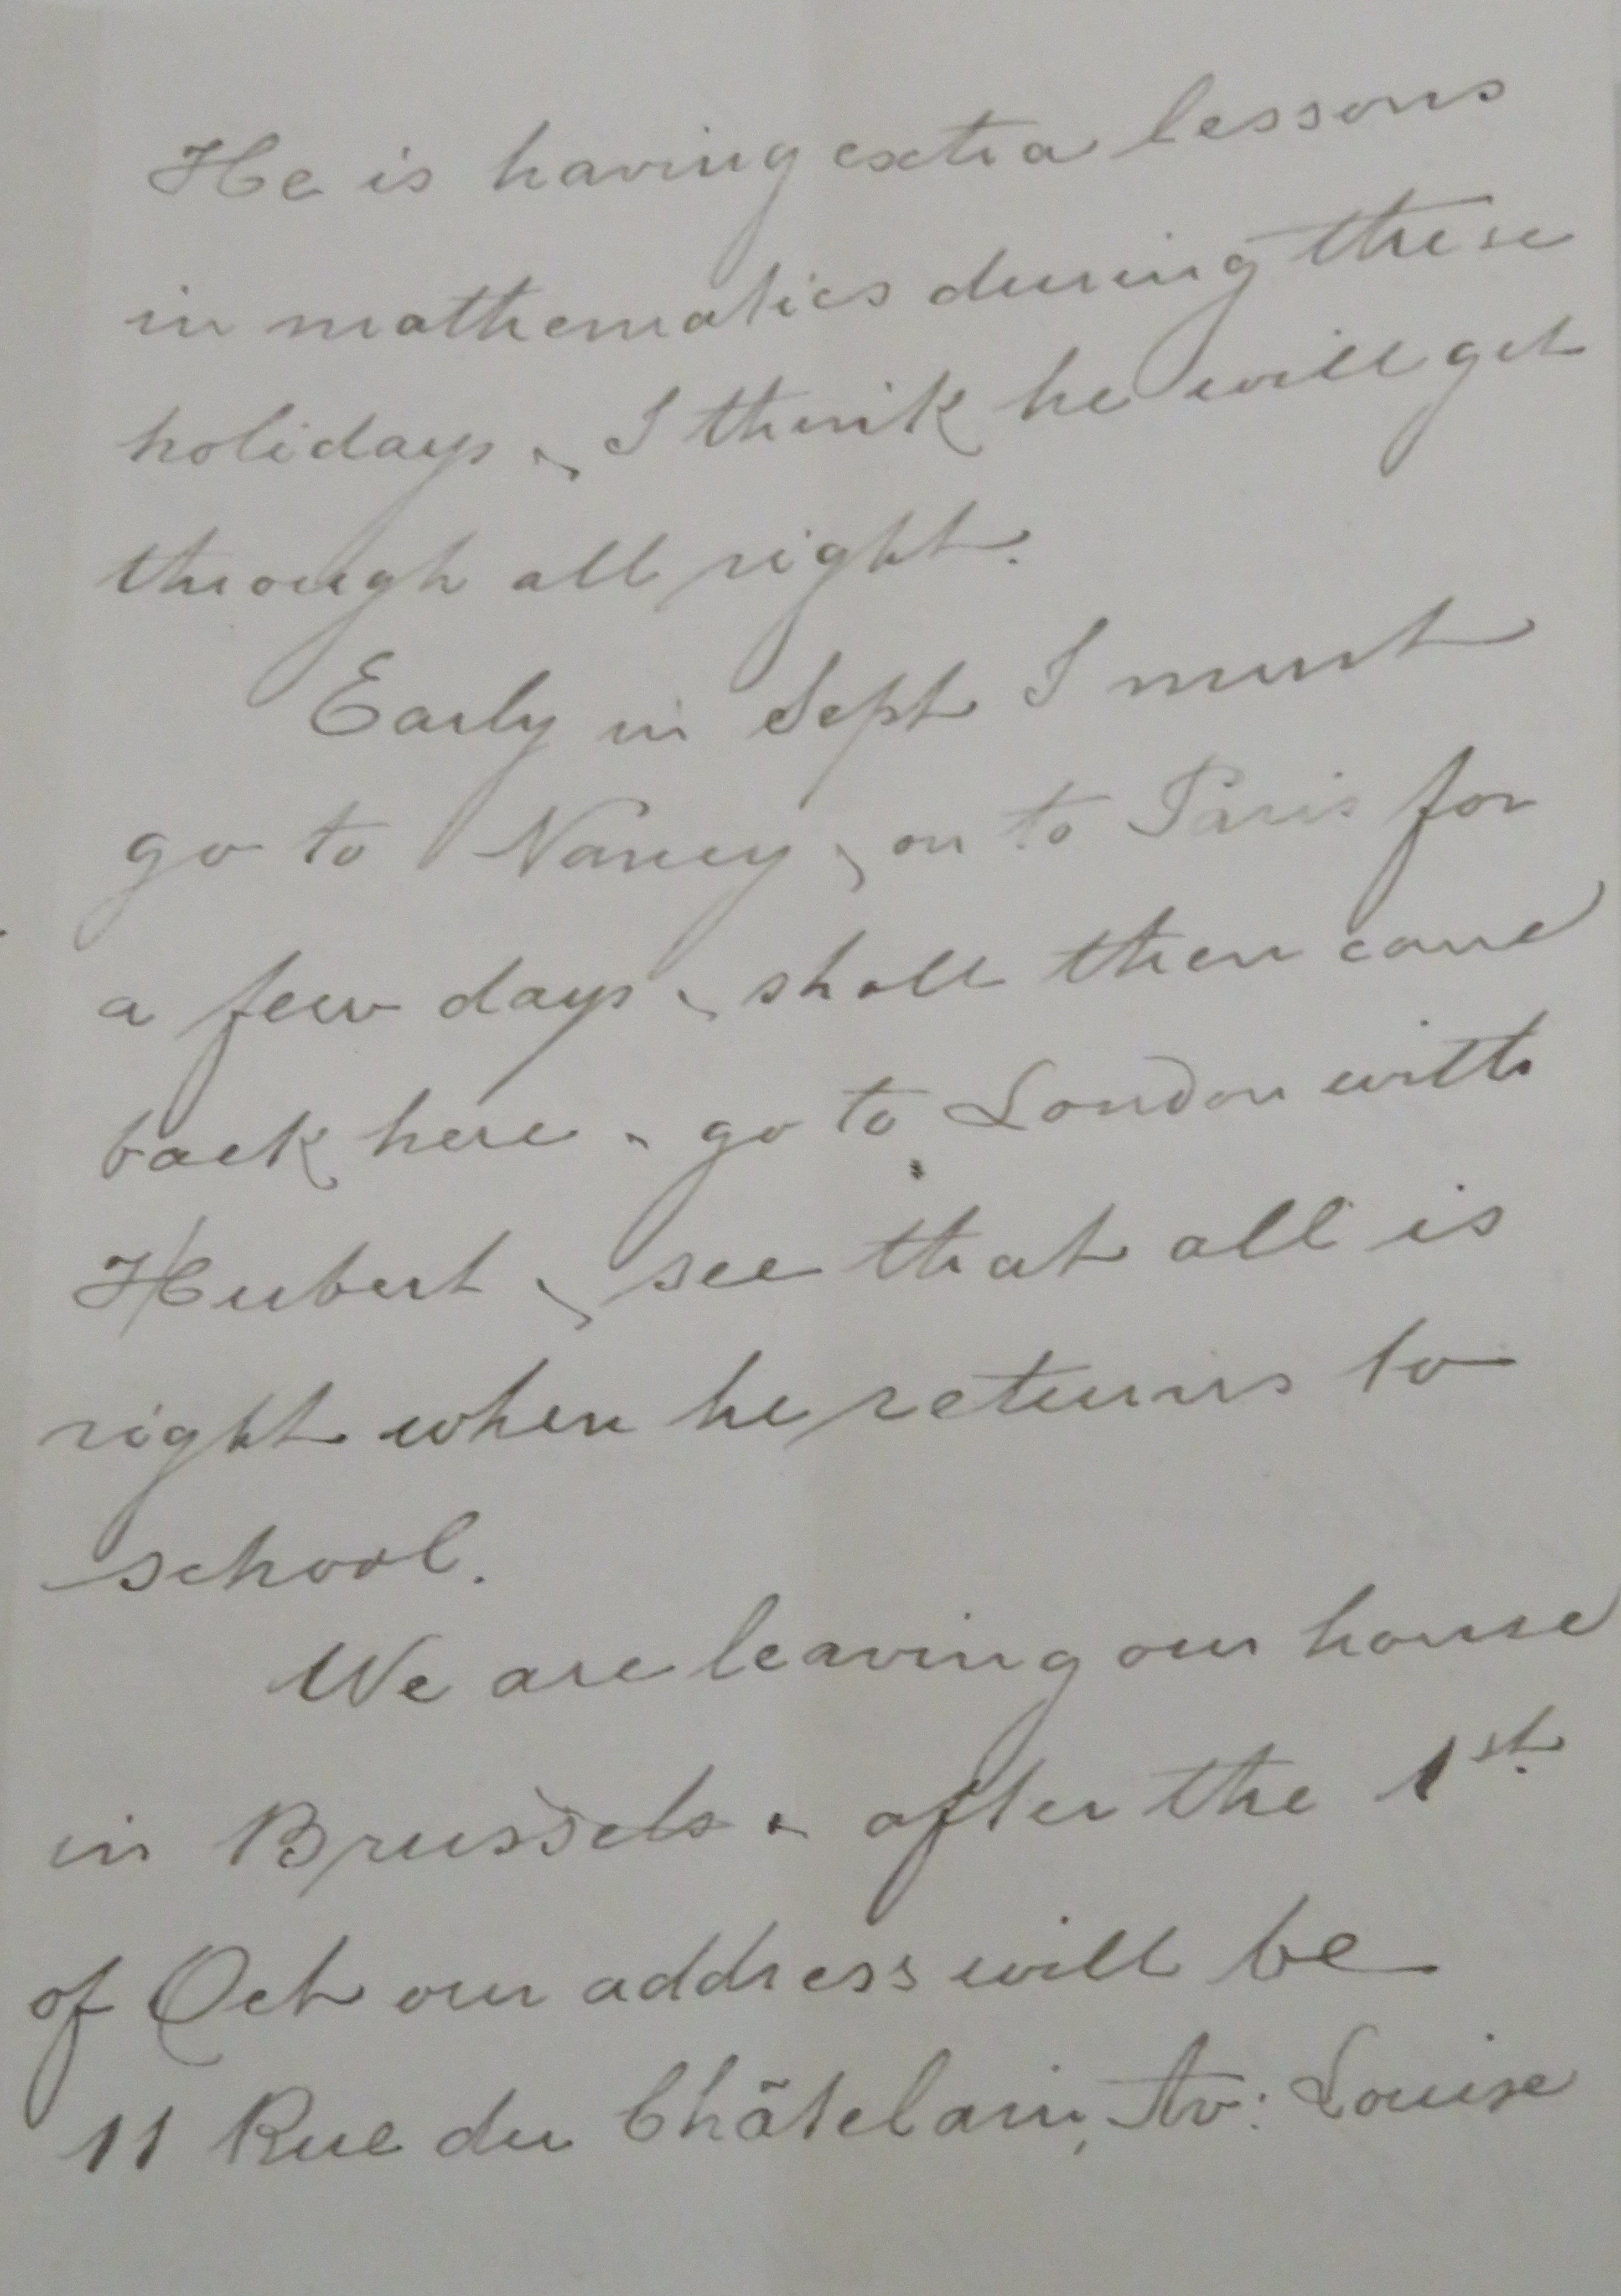 He is having extra lessons
in mathematics during these
holidays & I think he will get
through all right.
Early in Sept I must
go to Nancy & on to Paris for
a few days & shall then come
back here & go to London with
Hubert & see that all is
right when he returns to
school.
We are leaving our house
in Brussels & after the 1st
of Oct our address will be
11 Rue du Châtelain, Av: Louise